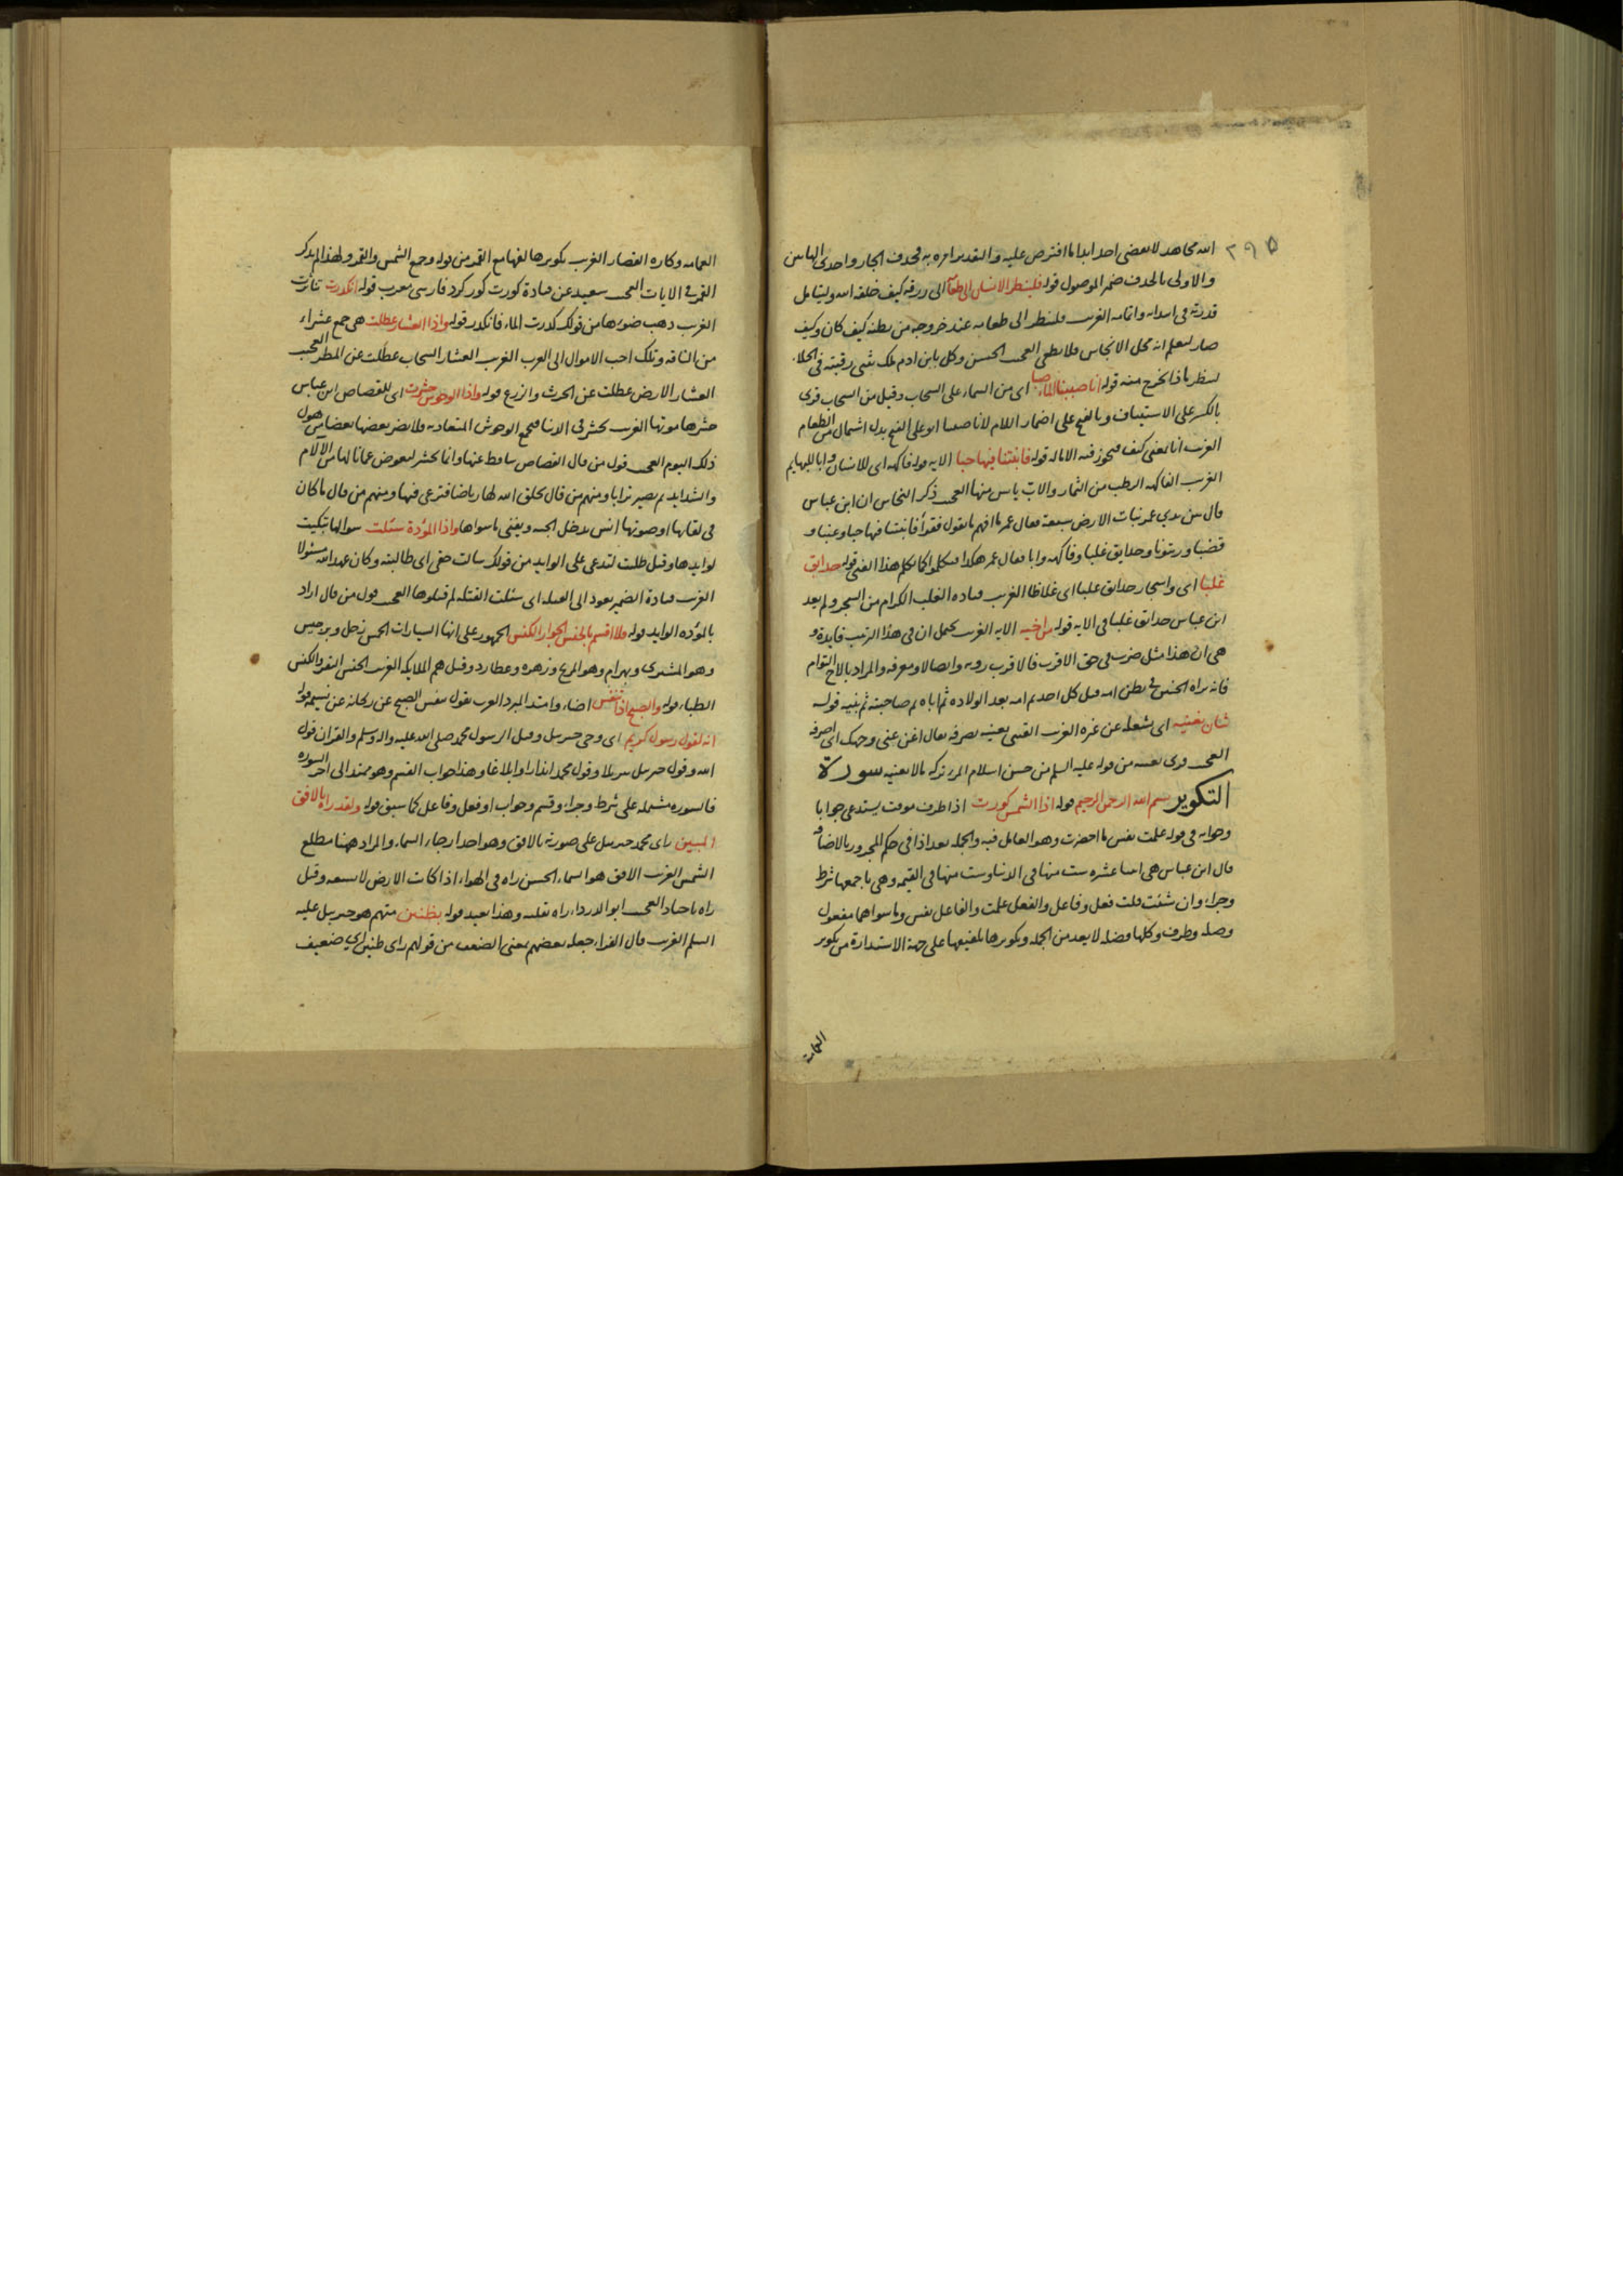 ٢٩٥
الله مجاهد لا يقضى احد ابدا ما افترض عليه والتقدير امره به فحذف الجار واحدى الهائين
والاولى بالحذف ضمير الموصول قوله فلينظر الانسان الى طعامه الى رزقه كيف خلقه الله وليتامل
قدرته فى الغريب فلينظر الى طعامه عند خروجه من بطنه كيف كان وكيف
صار ليعلم انه محل الانجاس فلا يطغى العجيب الحسن وكل بابن ادم ملك يثنى رقبته فى الخلاء
لينظر ماذا يخرج منه قوله انا صببنا الماء صبا اى من السماء على السحاب وقيل من السحاب قرى
بالكسر على الاستيناف وبالفتح على اضمار اللام لانا صببنا ابو على الفتح بدل اشتمال من الطعام
الغريب انا بمعنى كيف فيجوز فيه الاماله قوله فانبتنا فيها حبا الايه قوله فاكهه اى للانسان وابا للبهايم
الغريب الفاكهه الرطب من الثمار والاب يابس منها العجيب ذكر النحاس ان ابن عباس
قال بين يدي عمر نبات الارض سبعة فقال عمر ما افهم ما تقول فقرأ فانبتنا فيها حبا وعنبا و
قضبا وزيتونا وحدايق غلبا وفاكهه وابا فقال عمر هكذا تكلموا كما تكلم هذا الفتى قوله حدايق
غلبا اى واشجار حدائق غلبا اى غلاظا الغريب قتاده الغلب الكرام من الشجر ولم يعد
ابن عباس حدائق غلبا فى الايه قوله من اخيه الايه الغريب يحتمل ان فى هذا الترتيب فايدة و
هى ان هذا مثل ضرب فى حق الاقرب فالاقرب رويه واتصالا ومعرفه والمراد بالاخ التوام
فانه يراه الجنين فى بطن امه قبل كل احد ثم امه بعد الولاده ثم اباه ثم صاحبته ثم بنيه قوله
شان يغنيه اى يشغله عن غيره الغريب القتبى يغنيه يصرفه يقال اغن عنى وجهك اى اصرفه
العجيب قرى يعنيه من قوله عليه السلم من حسن اسلام المرء تركه ما لا يعنيه سورة
التكوير بسم الله الرحمن الرحيم قوله اذا الشمس كورت اذا ظرف موقت يستدعى جوابا
وجوابه فى قوله علمت نفس ما احضرت وهو العامل فيه والجمله بعد اذا فى حكم المجرور بالاضافه
قال ابن عباس هى اثنتا عشره ست منها فى الدنيا وست منها فى القيمه وهى باجمعها شرط
وجزاء وان شئت قلت فعل وفاعل والفعل علمت والفاعل نفس وما سواهما مفعول
وصله وظرف وكلها فضله لا يعد من الجمله وتكويرها تلفيعها على جهة الاستدارة من تكوير
العمامه
العمامه وكاره القصار الغريب تكويرها لفها مع القمر من قوله وجمع الشمس والقمر ولهذا لم يذكر
القمر فى الايات العجيب سعيد عن قتادة كورت كور كرد فارسى معرب قوله انكدرت تناثرت
الغريب ذهب ضوءها من قولك كدرت الماء فانكدر قوله واذا العشار عطلت هى جمع عشراء
من الناقه وتلك احب الاموال الى العرب الغريب العشار السحاب عطلت عن المطر العجيب
العشار الارض عطلت عن الحرث والزرع قوله واذا الوحوش حشرت اى للقصاص ابن عباس
حشرها موتها الغريب تحشر فى الدنيا فيجمع الوحوش المتعاديه ولا يضر بعضها بعضا من هول
ذلك اليوم العجيب قول من قال القصاص ساقط عنها وانما تحشر لتعوض عما نالها من الالام
والشدايد ثم يصير ترابا ومنهم من قال يخلق الله لها رياضا فترعى فيها ومنهم من قال ما كان
فى لقايها او صوتها انس يدخل الجنه ويفنى ما سواها واذا الموءودة سئلت سوالها تبكيت
لوايدها وقيل طلبت لتدعى على الوايد من قولك سالت حقى اى طالبته وكان عهد الله مسئولا
الغريب قتادة الضمير يعود الى القتله اى سئلت القتله لم قتلوها العجيب قول من قال اراد
بالموءده الوايد قوله فلا اقسم بالخنس الجوار الكنس الجمهور على انها السيارات الخمس زحل وبرجيس
وهو المشترى وبهرام وهو المريخ وزهره وعطارد وقيل هم الملايكه الغريب الخنس البقر والكنس
الظباء قوله والصبح اذا تنفس اضاء وامتد المبرد العرب تقول تنفس الصبح عن ريحانه عن نسيمه قوله
انه لقول رسول كريم اى وحى جبريل وقيل الرسول محمد صلى الله عليه واله وسلم والقران قول
الله وقول جبريل تنزيلا وقول محمد انذارا وابلاغا وهذا جواب القسم وهو ممتد الى اخر السوره
فالسوره مشتمله على شرط وجزاء وقسم وجواب او فعل وفاعل كما سبق قوله ولقد راه بالافق
المبين راى محمد جبريل على صورته بالافق وهو احد ارجاء السماء والمراد ههنا مطلع
الشمس الغريب الافق هو السماء الحسن راه فى الهواء اذ كانت الارض لا تسعه وقيل
راه باجياد العجيب ابو الدرداء راه بقلبه وهذا بعيد قوله بظنين متهم هو جبريل عليه
السلم الغريب قال الفراء جعله بعضهم بمعنى الضعيف من قولهم راى ظنين اي ضعيف